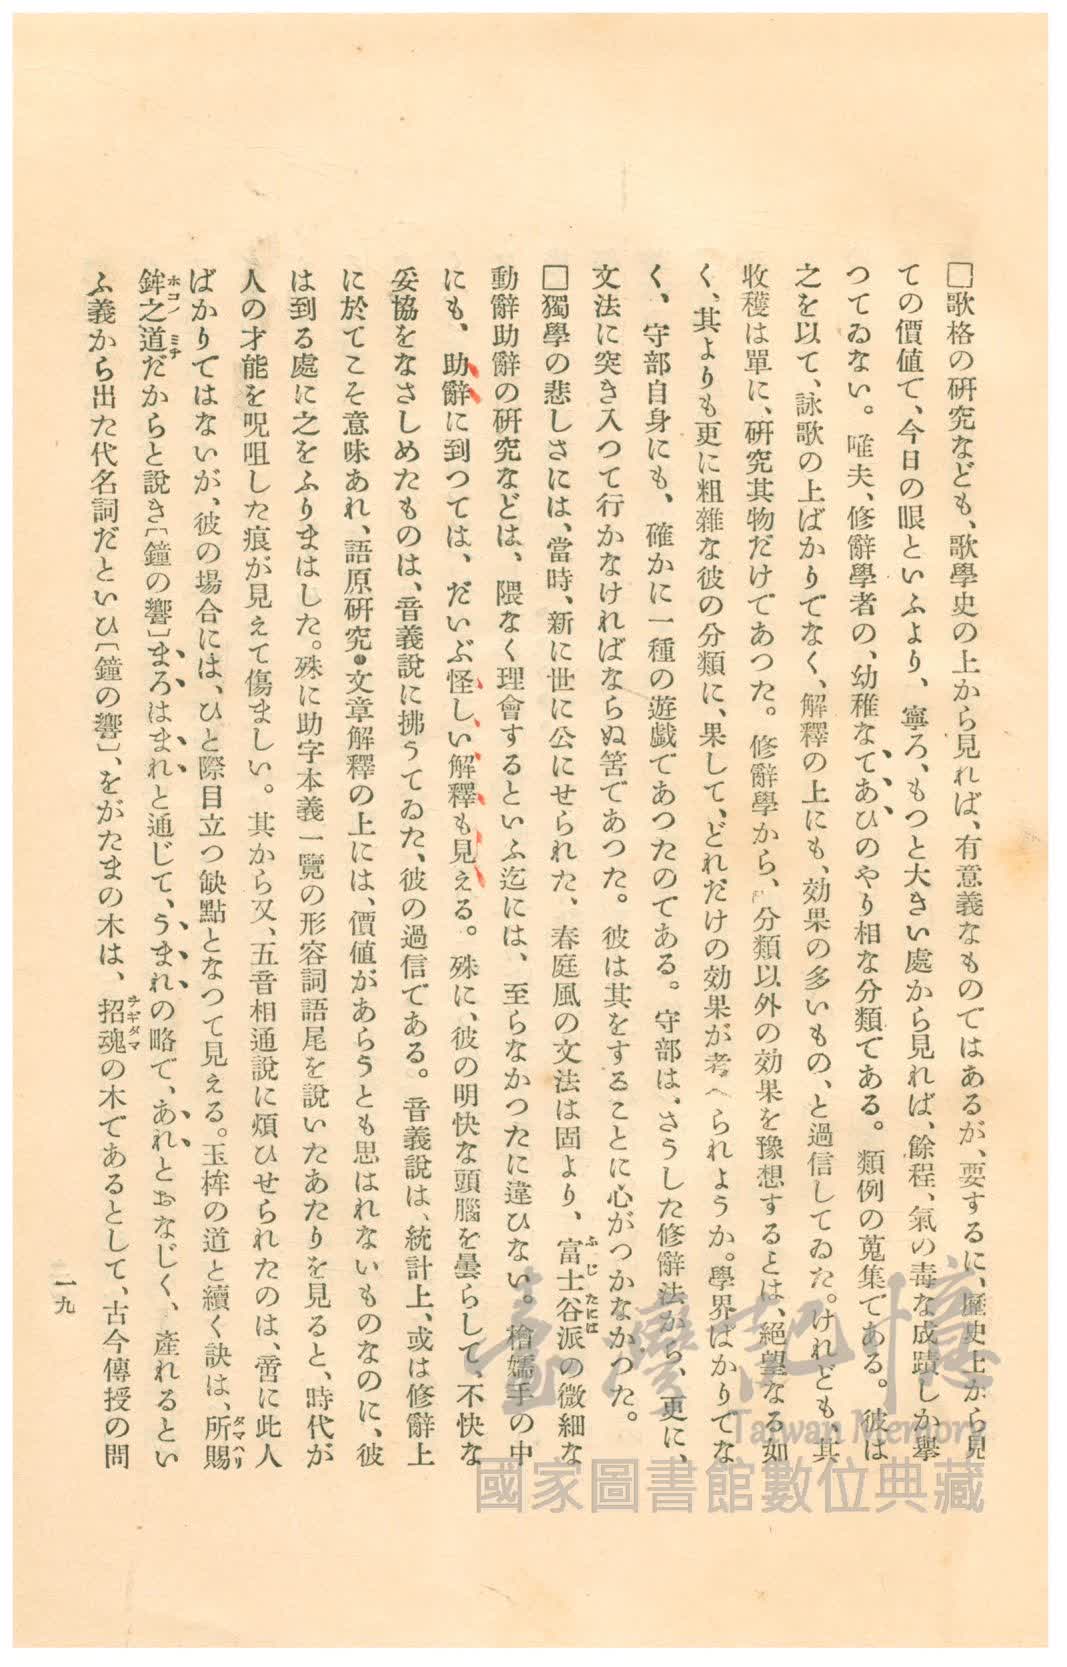 □歌格の研究なども、歌學史の上から見れば、有意義なものではあるが、要するに、歴史上から見
ての價値で、今日の眼といふより、寧ろ、もつと大きい處から見れば、餘程、氣の毒な成蹟しか擧
つてゐない。唯夫、修辭學者の、幼稚なてあひのやり相な分類である。類例の蒐集である。彼は
之を以て、詠歌の上ばかりでなく、解釋の上にも、効果の多いもの、と過信してゐた。けれども、其
收穫は單に、研究其物だけであつた。修辭學から、分類以外の効果を豫想するとは、絕望なる如
く、其よりも更に粗雜な彼の分類に、果して、どれだけの効果が考へられようか。學界ばかりでな
く、守部自身にも、確かに一種の遊戯であつたのである。守部は、さうした修辭法から、更に、
文法に突き入つて行かなければならぬ筈であつた。彼は其をすることに心がつかなかつた。
□獨學の悲しさには、當時、新に世に公にせられた、春庭風の文法は固より、富士谷派の微細な
ふじたには
動辭助辭の研究などは、隈なく理會するといふ迄には、至らなかつたに違ひない。檜嬬手の中
にも、助辭に到つては、だいぶ怪しい解釋も見える。殊に、彼の明快な頭腦を曇らして、不快な
妥協をなさしめたものは、音義說に拂うてゐた、彼の過信である。音義說は、統計上、或は修辭上
に於てこそ意味あれ、語原研究・文章解釋の上には、價値があらうとも思はれないものなのに、彼
は到る處に之をふりまはした。殊に助字本義一覽の形容詞語尾を說いたあたりを見ると、時代が
人の才能を呪咀した痕が見えて傷ましい。其から又、五音相通說に煩ひせられたのは、啻に此人
ばかりではないが、彼の場合には、ひと際目立つ缺點となつて見える。玉桙の道と續く訣は、所賜
タマハリ
鉾之道だからと說き〔鐘の響〕まろはまれと通じて、うまれの略で、あれとおなじく、產れるとい
ホコノミチ
ふ義から出た代名詞だといひ〔鐘の響〕、をがたまの木は、招魂の木であるとして、古今傳授の問
ヲギダマ
一九
臺灣記憶
Taiwan Memory
國家圖書館數位典藏